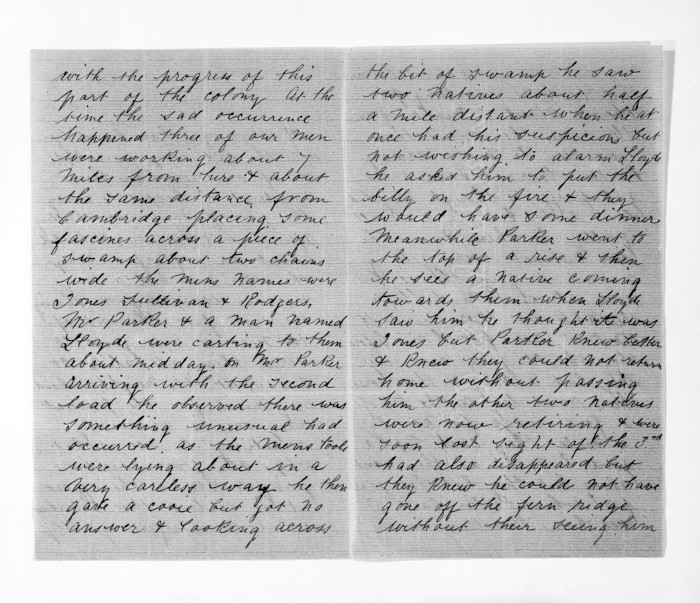 with the progress of this
part of the colony At the
time the sad occurrence
happened three of our men
were working about 7
miles from here & about
the same distance from
Cambridge placing some
fascines across a piece of
swamp about two chains
wide the mens names were
Jones Sullivan & Rodgers.
Mr Parker & a man named
Lloyde were carting to them
about midday. on Mr Parker
arriving with the second
load he observed there was
something unusual had
occurred. as the mens tools
were lying about in a
very careless way he then
gave a cooie but got no
answer & looking across
the bit of swamp he saw
two natives about half
a mile distant when he at
once had his suspicions but
not wishing to alarm Lloyde
he asked him to put the
billy on the fire & they
would have some dinner
Meanwhile Parker went to
the top of a rise & then
he sees a native coming
towards them when Lloyde
saw him he thought it was
Jones but Parker knew better
& knew they could not return
home without passing
him the other two natives
were now retiring & were
soon lost sight of the 3rd
had also disappeared but
they knew he could not have
gone off the fern ridge
without their seeing him